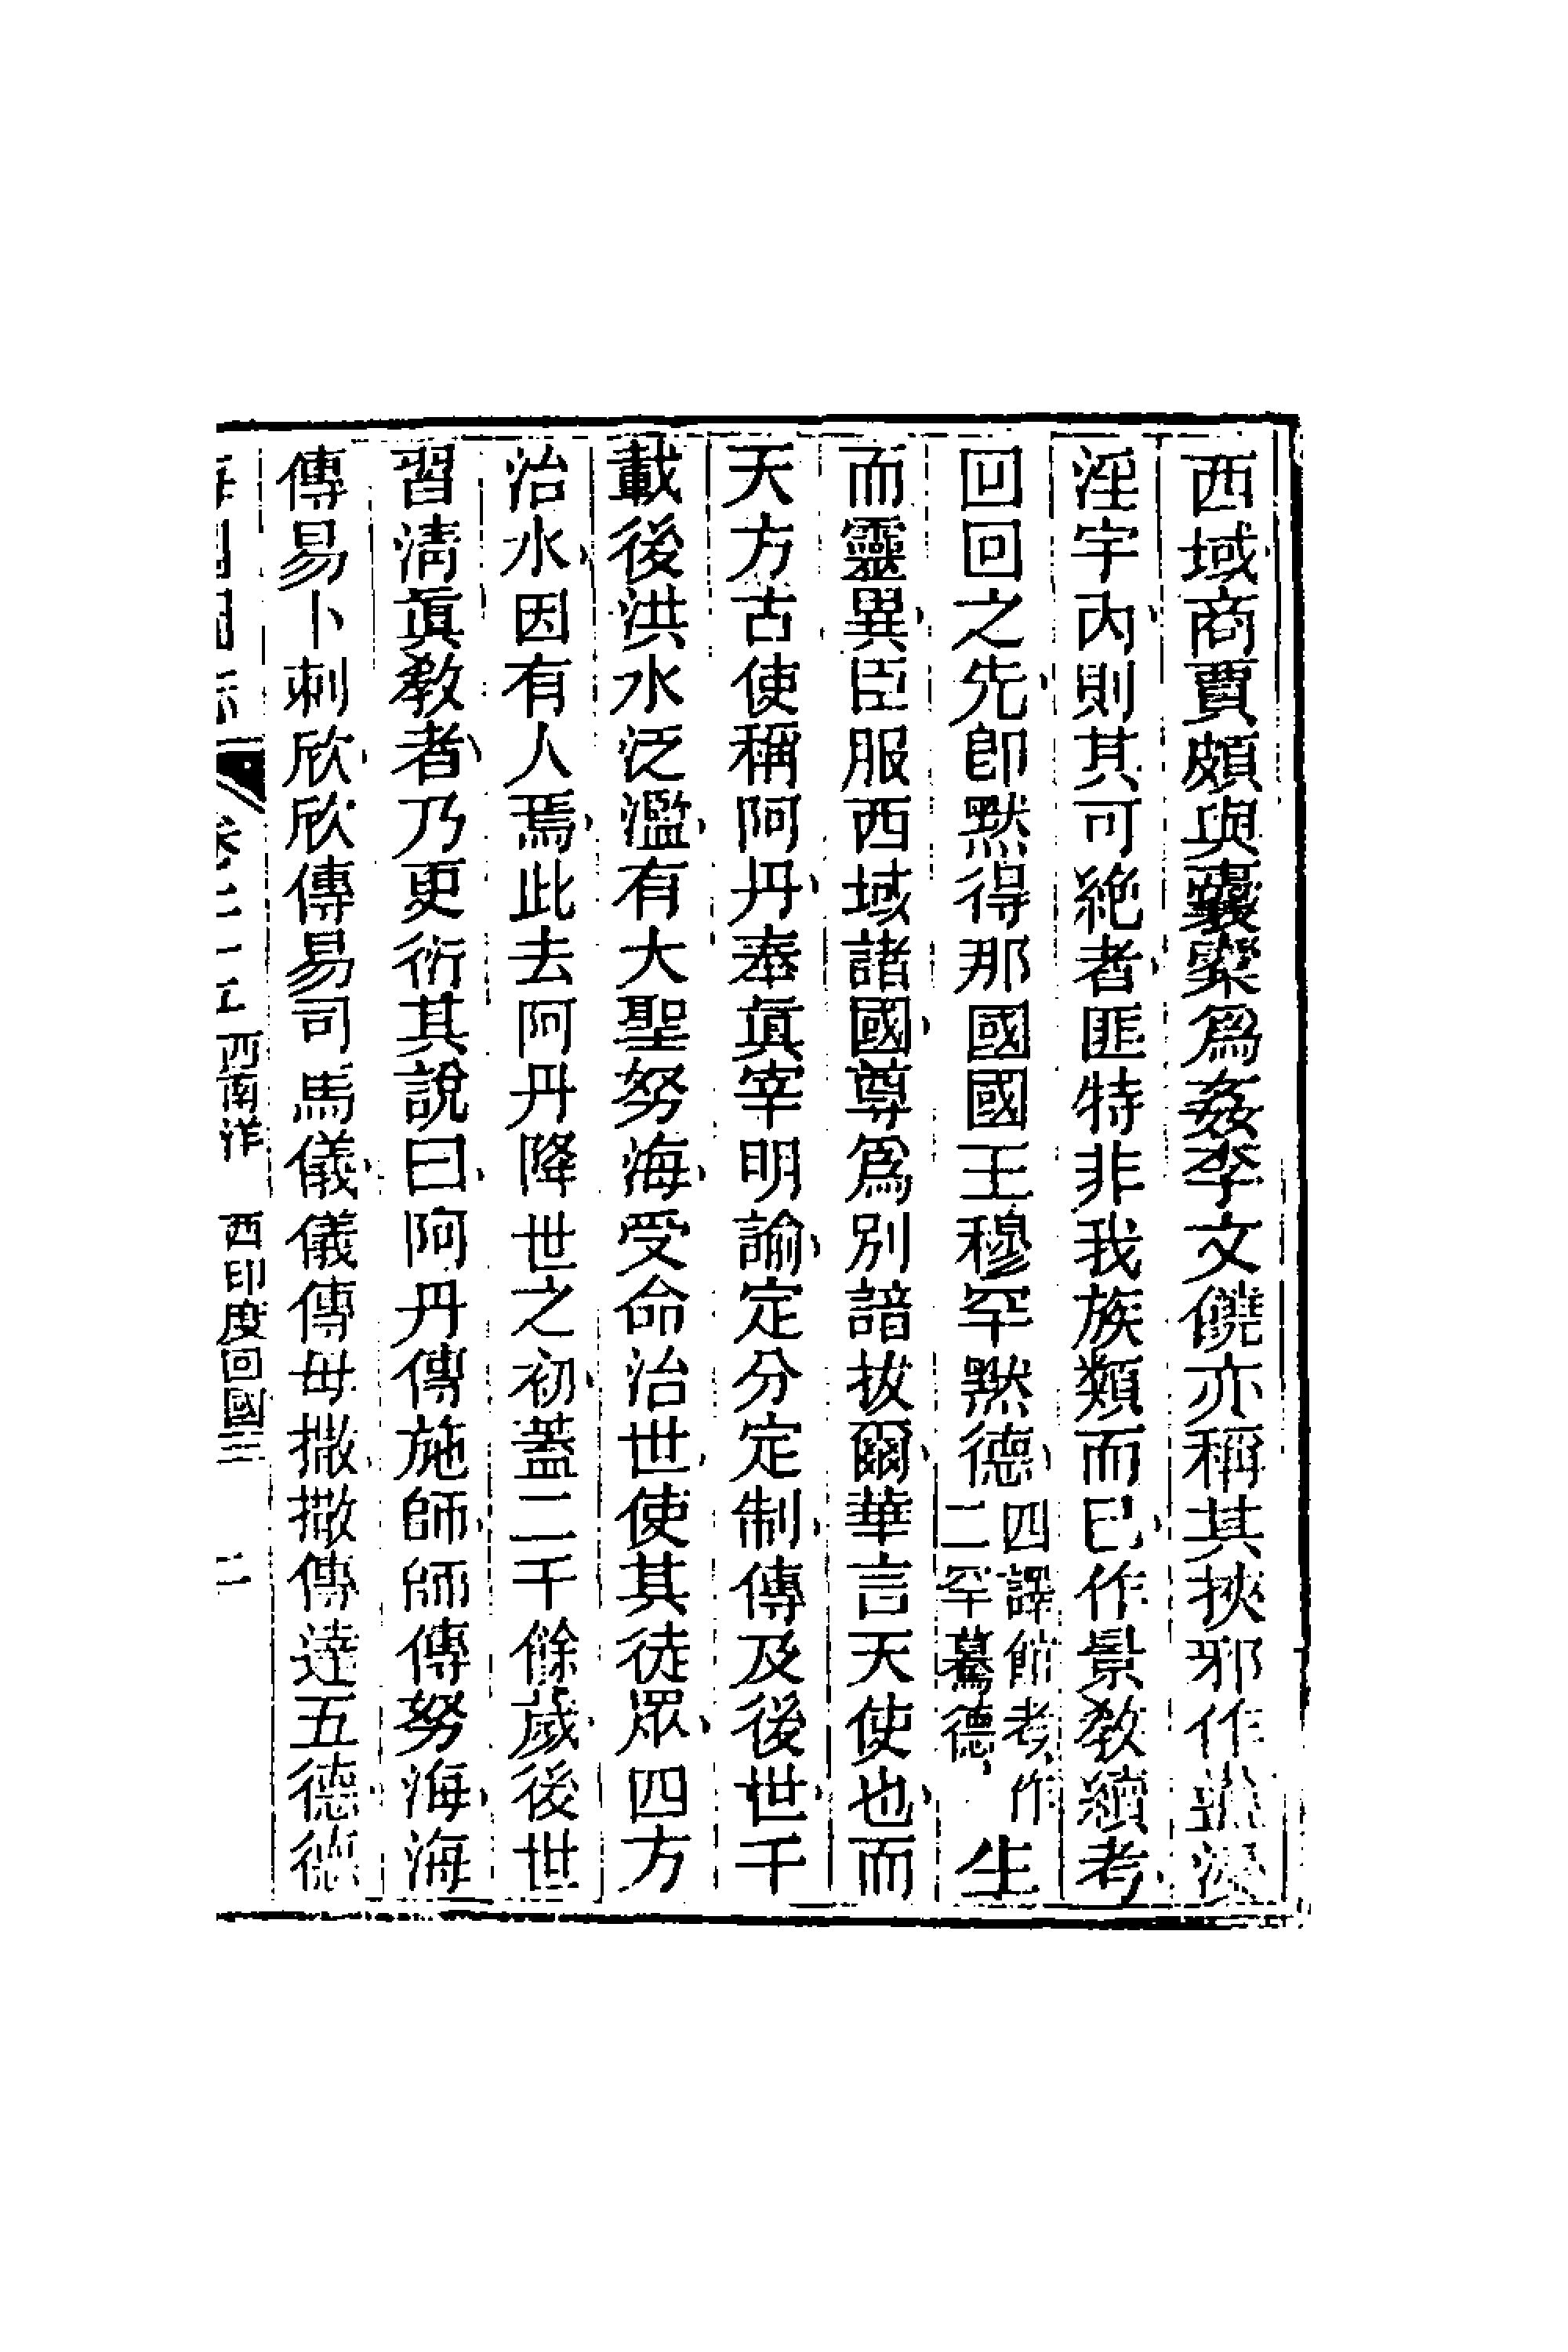 西域商賈頗與囊橐爲姦李文饒亦稱其挾邪作蠱浸
淫宇內則其可絶者匪特非我族類而已作景敎續考
回回之先卽默得那國國王穆罕默德四譯館考作二罕驀德生
而靈異臣服西域諸國尊爲別諳拔爾華言天使也而
天方古使稱阿丹奉眞宰明諭定分定制傳及後世千
載後洪水泛濫有大聖努海受命治世使其徒眾四方
治水因有人焉此去阿丹降世之初蓋二千餘歲後世
習淸眞敎者乃更衍其說曰阿丹傳施師師傳努海海
傳易卜剌欣欣傳易司馬儀儀傳母撒撒傳達五德德
海國圖志 卷二十五 西南洋 西印度回國三 二